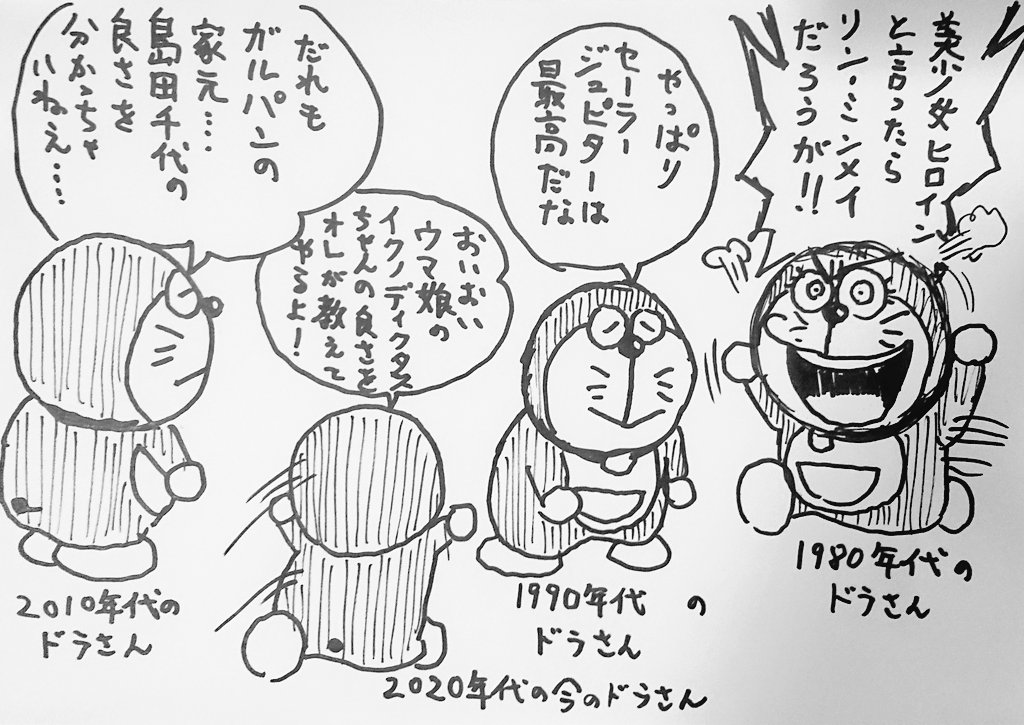 美少女ヒロイン
と言ったら
リン・ミンメイ
だろうが!!
やっぱり
セーラー
ジュピターは
最高だな
おいおい
ウマ娘の
イクノディクタス
ちゃんの良さを
オレが教えて
やるよ!
だれも
ガルパンの
家元…
島田千代の
良さを
分かっちゃ
いねえ…
1980年代の
ドラさん
1990年代の
ドラさん
2020年代の今のドラさん
2010年代の
ドラさん